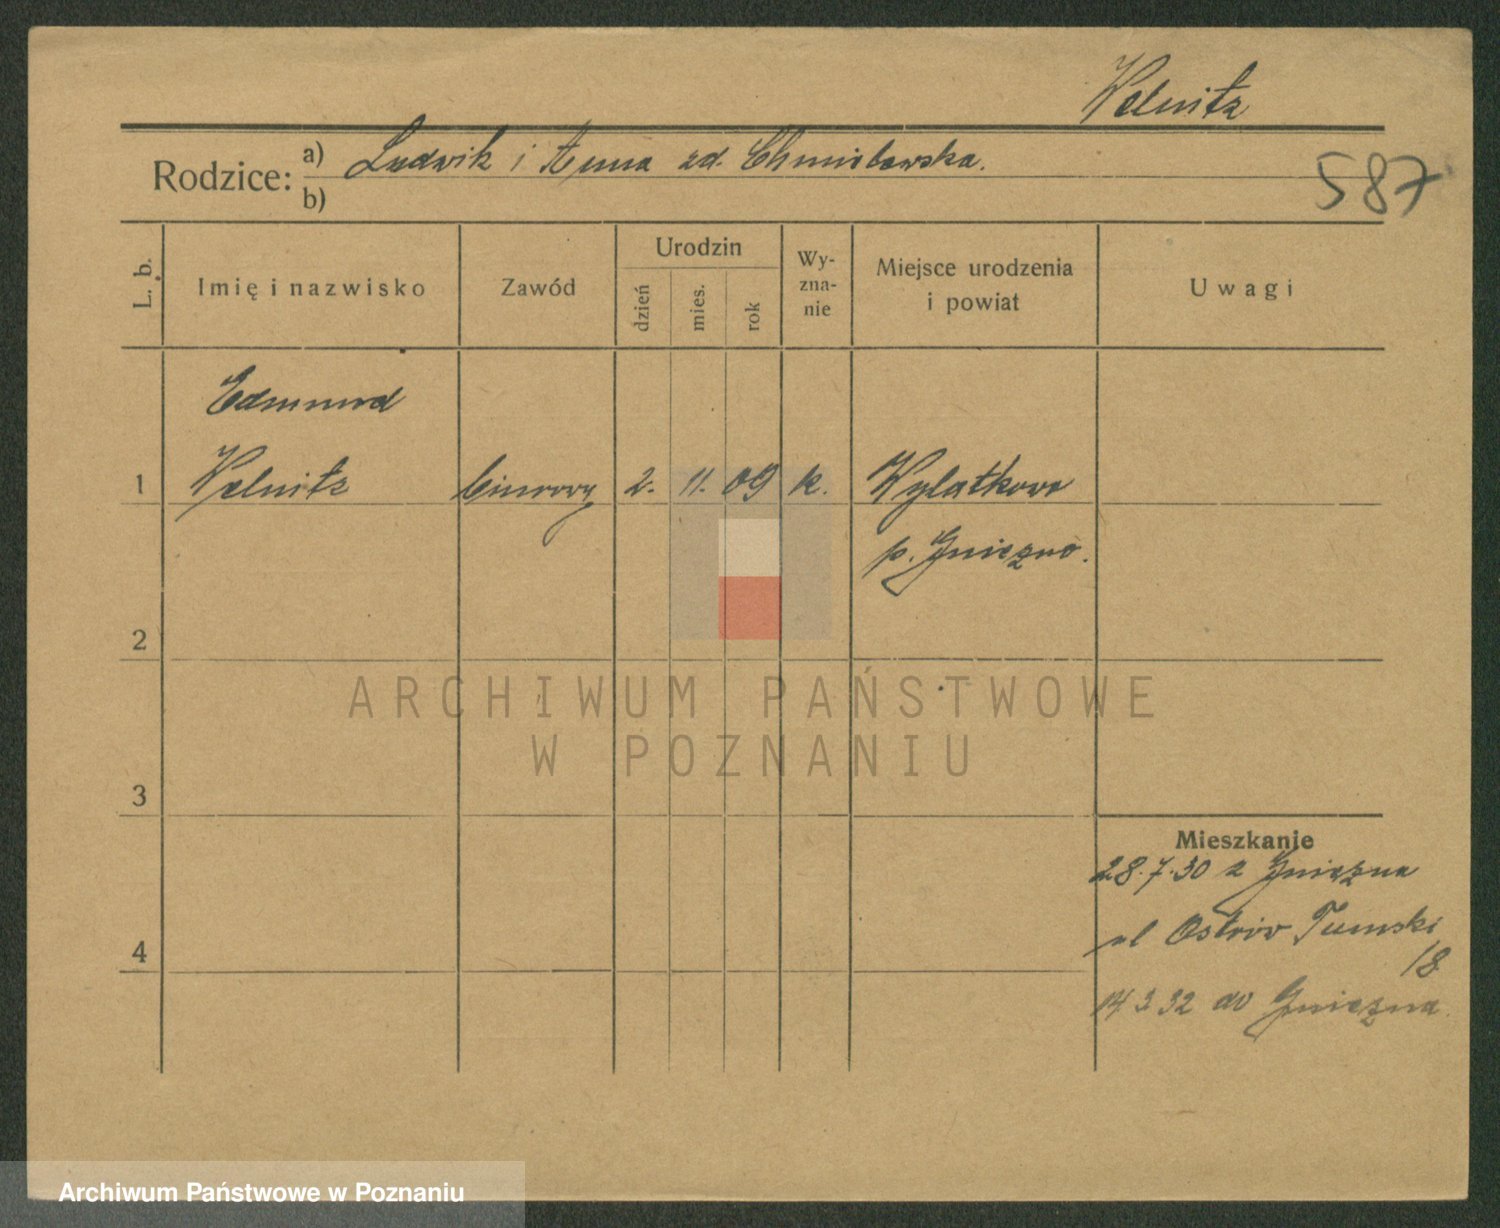 Welnitz
Rodzice: a) Ludwik i Anna zd. Chmielewska.
b)
587
L. b.
Imię i nazwisko
Zawód
Urodzin
dzień
mies.
rok
Wy-
zna-
nie
Miejsce urodzenia
i powiat
Uwagi
Edmund
1 Welnitz biurowy 2. 11. 09 k. Wylatkowo
p. Gniezno.
2
ARCHIWUM PAŃSTWOWE
W POZNANIU
3
Mieszkanie
28.7.30 z Gniezna
4 ul Ostrów Tumski
18
14 3 32 do Gniezna.
Archiwum Państwowe w Poznaniu